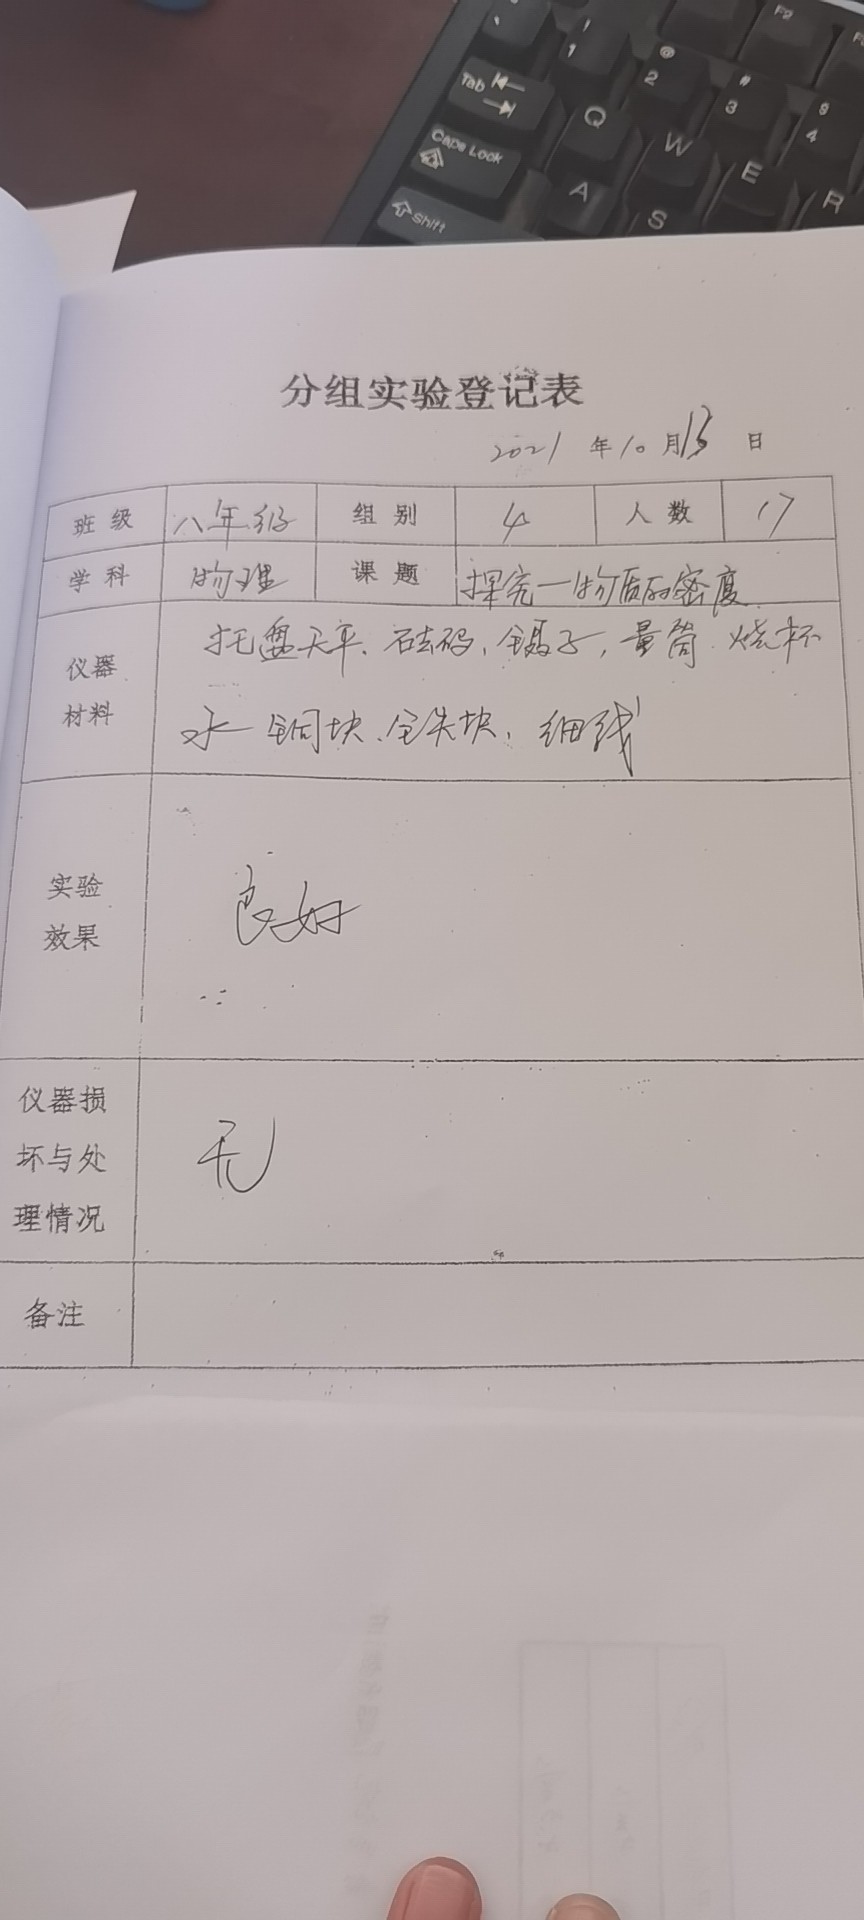 F2
! 1
@ 2
# 3
4
Tab
Q W E R
Caps Lock
A S
Shift
分组实验登记表
2021 年 10 月 13 日
班级 八年级 组别 4 人数 17
学科 物理 课题 探究一物质的密度
仪器 托盘天平、砝码、镊子，量筒 烧杯
材料 水 铜块、铁块、细线
实验
效果
良好
仪器损
坏与处
理情况
无
备注